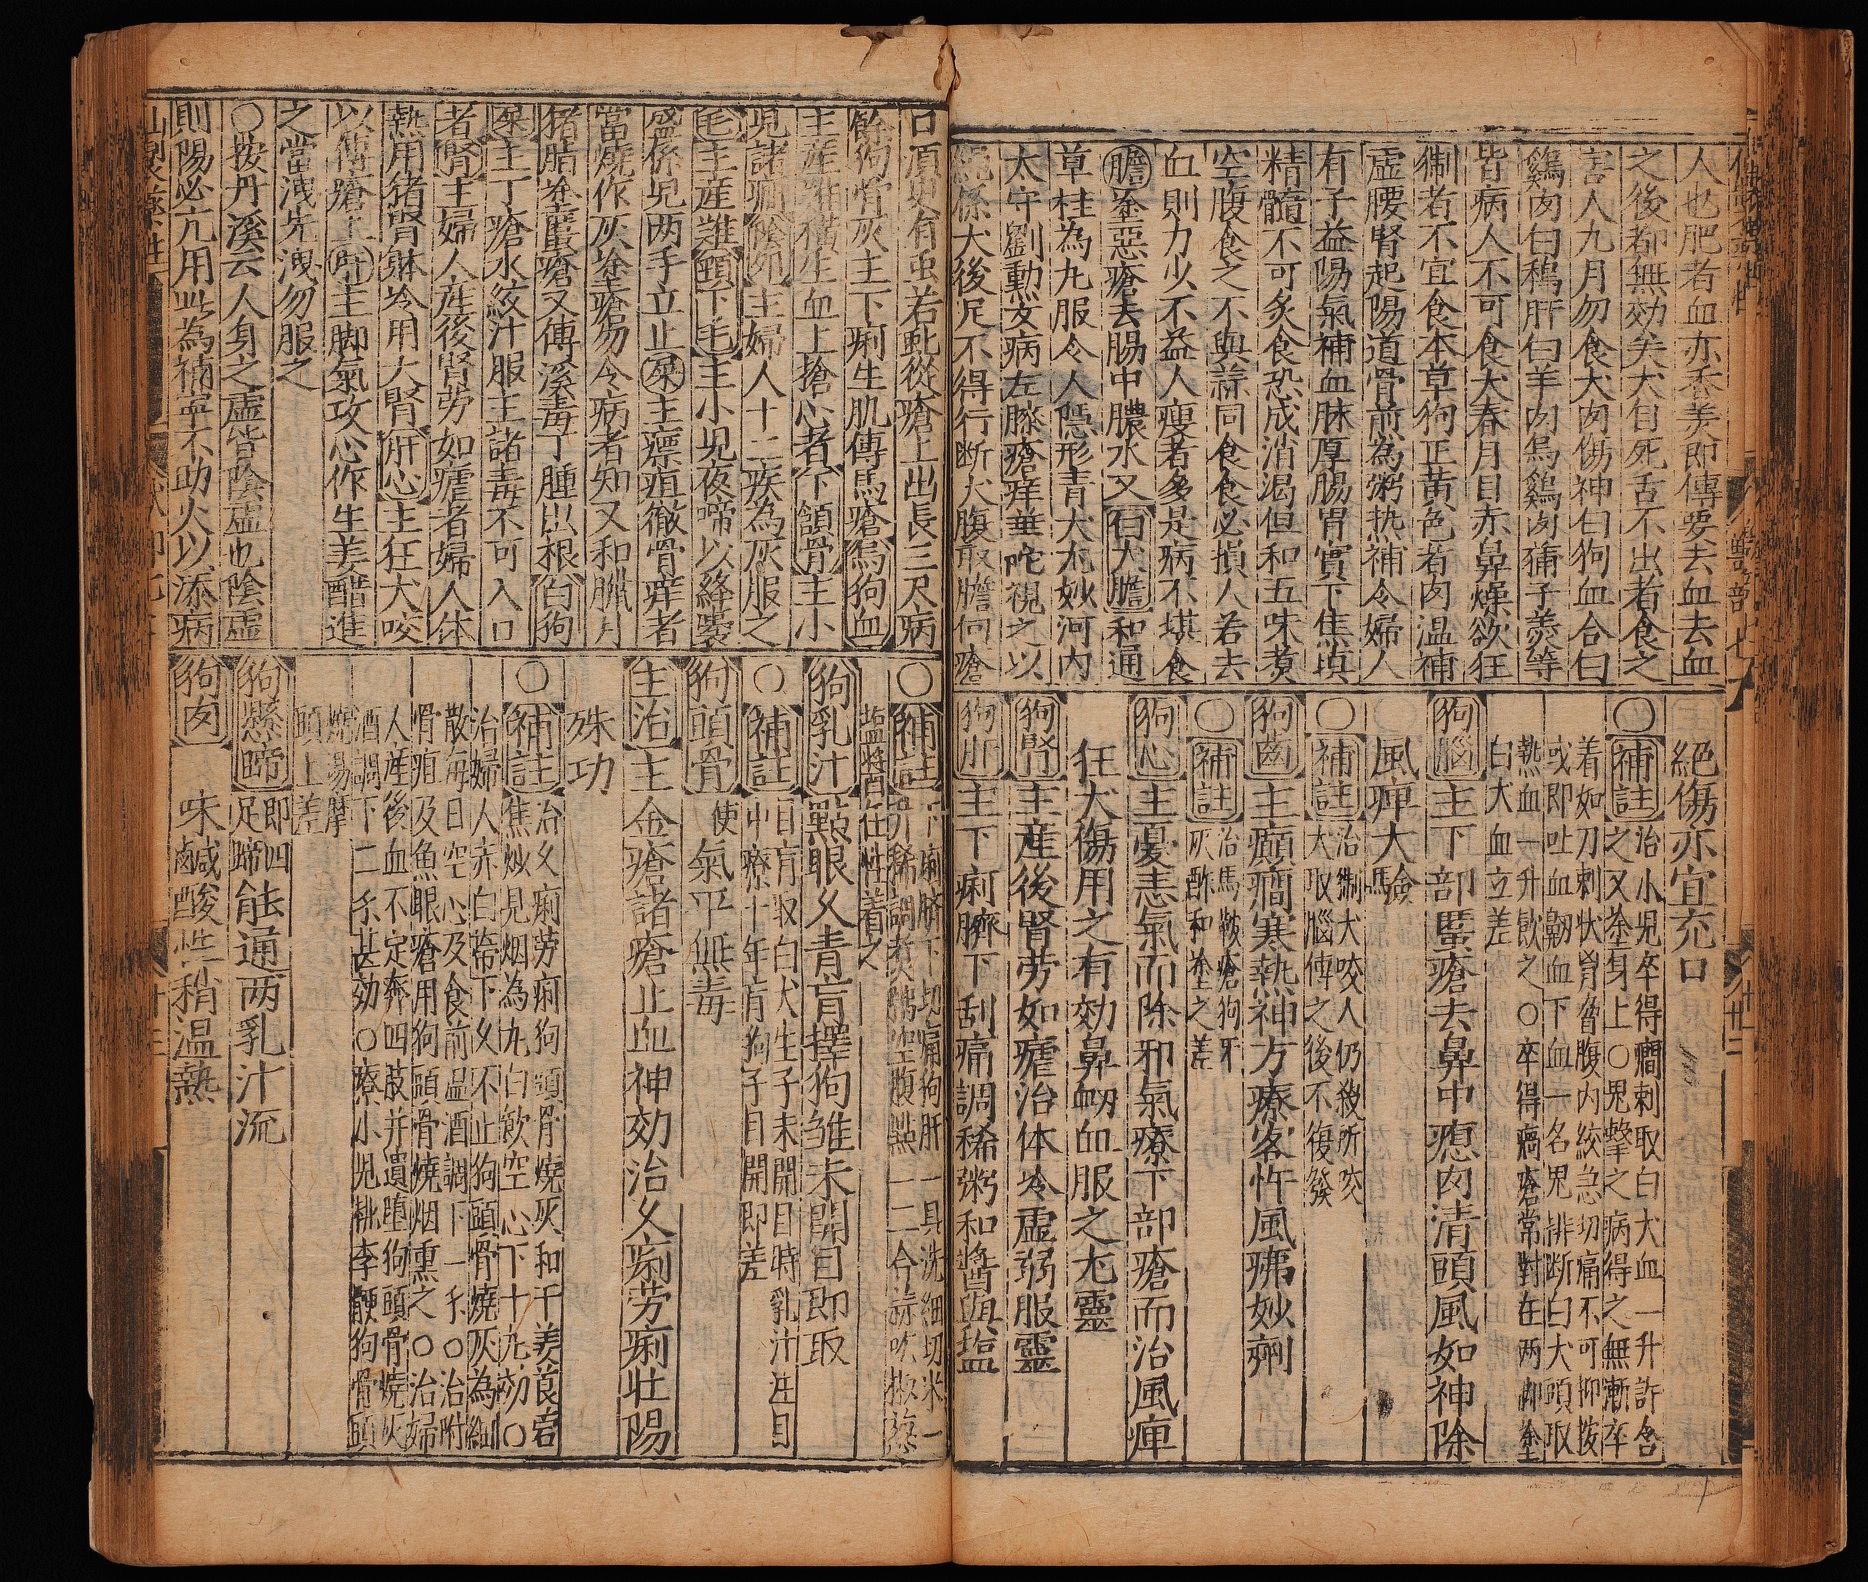 人也肥者血亦香美即傳要去血去血
之後都無効矣犬自死舌不出者食之
害人九月勿食犬肉傷神白狗血合白
雞肉白鵝肝白羊肉烏雞肉蒲子羡等
皆病人不可食犬春月目赤鼻燥欲狂
猘者不宜食本草狗正黃色者肉溫補
虛腰腎起陽道骨前為粥热補令婦人
有子益陽氣補血脉厚腸胃實下焦填
精髓不可炙食恐成消渴但和五味煑
空腹食之不與蒜同食食必損人若去
血則力少不益人瘦者多是病不堪食
膽塗惡瘡去腸中膿水又白犬膽和通
草桂為丸服令人隱形青犬尤妙河内
太守劉勳女病左膝瘡痒華陀視之以
絕係犬後足不得行断犬腹取膽向瘡
絕傷亦宜充口
補註治小児卒得癎刺取白犬血一升許含
之又塗身上〇鬼擊之病得之無漸卒
着如刀刺状胷脅腹内絞急切痛不可抑按
或即吐血衂血下血一名鬼排断白犬頭取
熱血一升飲之〇卒得瘑瘡常對在两脚塗
白犬血立差
狗腦主下部䘌瘡去鼻中瘜肉清頭風如神除
風痺大驗
〇補註治猘犬咬人仍殺所咬
犬取腦傅之後不復發
狗齒主癲癎寒熱神方療客忤風疿妙劑
〇補註治馬鞍瘡狗牙
灰酢和塗之差
狗心主憂恚氣而除邪氣療下部瘡而治風痺
狂犬傷用之有効鼻衂血服之尤靈
狗腎主產後腎劳如瘧治体冷虛弱服靈
狗肝主下痢臍下刮痛調稀粥和醬與塩
口須臾有虫若虵從瘡上出長三尺病
餘狗骨灰主下痢生肌傅馬瘡烏狗血
主産難橫生血上搶心者下頷骨主小
児諸癎陰卵主婦人十二疾為灰服之
毛主産難頸下毛主小児夜啼以絳囊
盛係児两手立止屎主瘭疽徹骨痒者
當燒作灰塗瘡勿令病者知又和臘月
猪脂塗䘌瘡又傅溪毒丁腫出根白狗
屎主丁瘡水絞汁服主諸毒不可入口
者腎主婦人産後腎劳如瘧者婦人体
熱用猪腎躰冷用犬腎肝心主狂犬咬
以傅瘡上肝主脚氣攻心作生姜醋進
之當洩先洩勿服之
〇按丹溪云人身之虛皆陰虛也陰虛
則陽必亢用此為補寧不助火以添病
〇補註下痢臍下切痛狗肝一具洗細切米一
升稀調煮觧空腹熱一二合蒜吃椒葱
塩醬任性着之
狗乳汁點眼久青盲擇狗雏未開目即取
〇補註目盲取白犬生子未開目時乳汁注目
中療十年盲狗子目開即差
狗頭骨使氣平無毒
主治主金瘡諸瘡止血神効治久痢劳痢壮陽
殊功
〇補註治久痢劳痢狗頭骨燒灰和干姜莨菪
焦炒見烟為丸白飲空心下十丸効〇
治婦人赤白帶下久不止狗頭骨燒灰為細
散每日空心及食前温酒調下一錢〇治附
骨疽及魚眼瘡用狗頭骨燒烟熏之〇治婦
人產後血不定奔四肢并遺堕狗頭骨燒灰
酒調下二錢甚効〇療小児桃李鯁狗骨頭
燒湯摩
頭上差
狗懸蹄即四
足蹄能通两乳汁流
狗肉味鹹酸性稍温熱